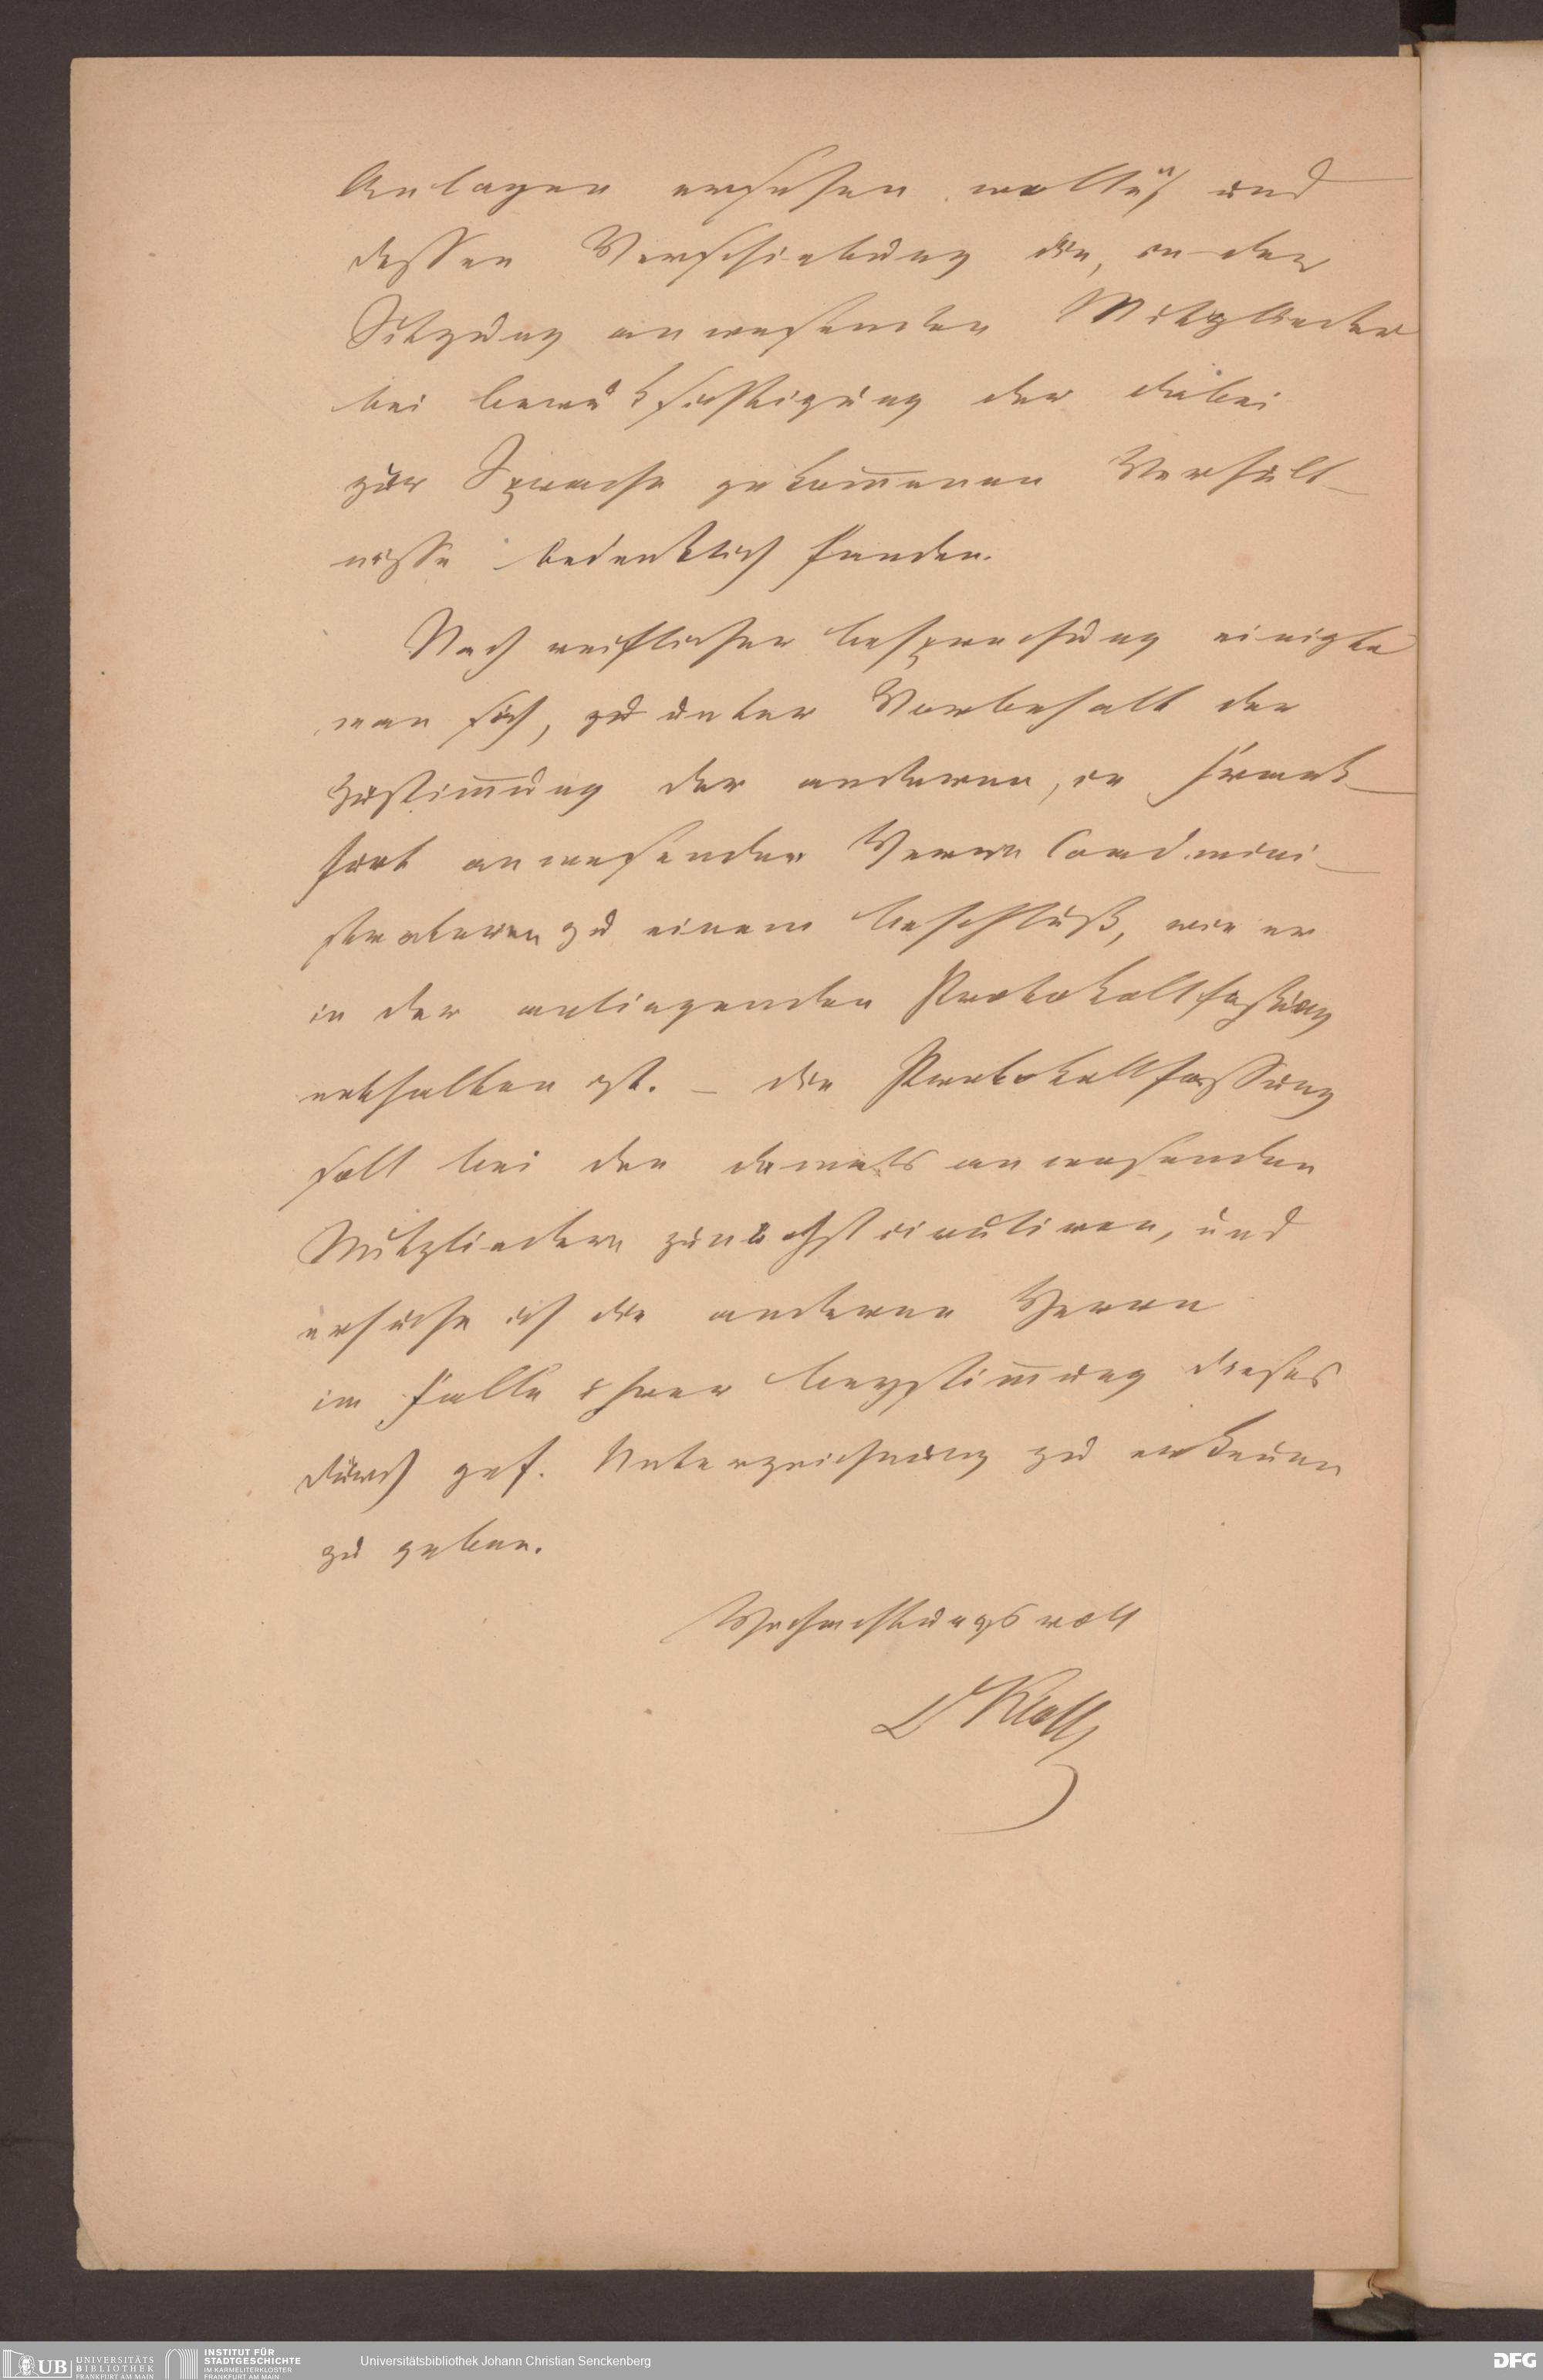 Anlagen ersehen wollen und
dessen Verschiebung die, in der
Sitzung anwesenden Mitglieder
bei Berücksichtigung der dabei
zur Sprache gekommenen Verhält-
nisse bedenklich fanden.
Nach reiflicher Besprechung einigte
man sich, zu unter Vorbehalt der
Zustimmung der anderen, in Frank-
furt anwesenden Herrn Coadmini-
stratoren zu einem Beschluß, wie er
in der anliegenden Protokollfassung
enthalten ist. – Die Protokollfassung
soll bei den damals anwesenden
Mitgliedern zunächst circuliren, und
ersuche ich die anderen Herrn
im Falle ihrer Beystimmung dieses
durch gef. Unterzeichnung zu erkennen
zu geben.
Hochachtungsvoll
Dr Kloß
UB UNIVERSITÄTS
BIBLIOTHEK
FRANKFURT AM MAIN
INSTITUT FÜR
STADTGESCHICHTE
IM KARMELITERKLOSTER
FRANKFURT AM MAIN
Universitätsbibliothek Johann Christian Senckenberg
DFG